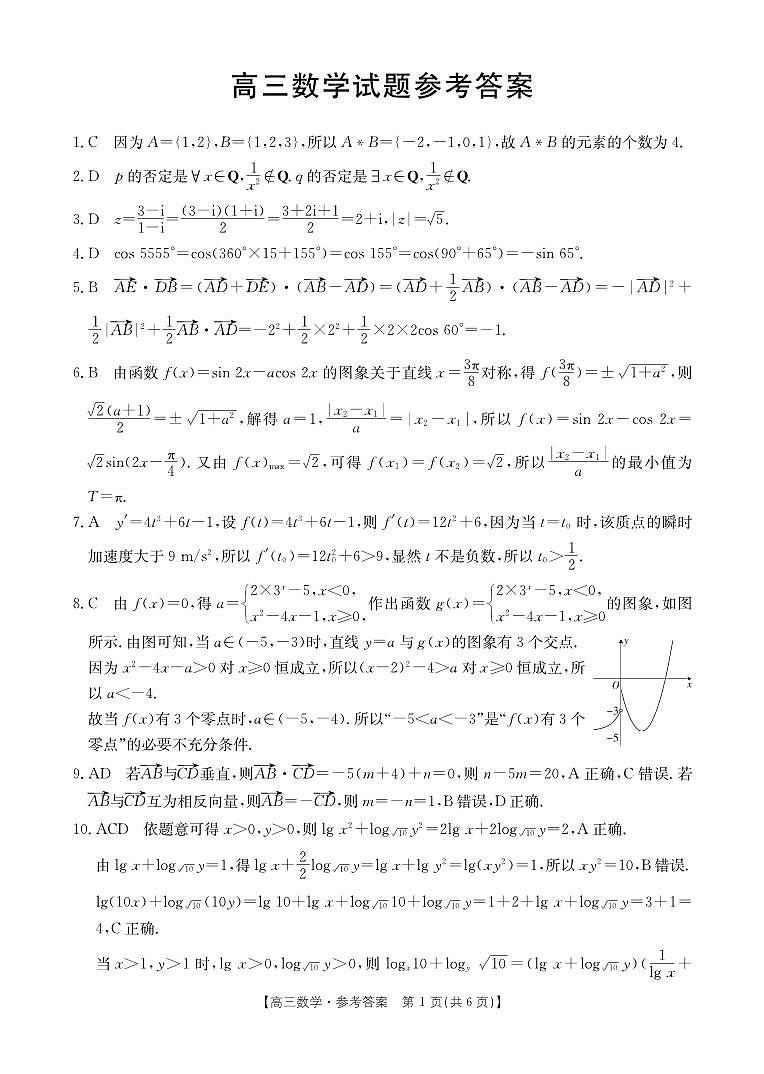 高三数学试题参考答案
1. C 因为 A={1,2},B={1,2,3},所以 A*B={-2,-1,0,1},故 A*B 的元素的个数为 4.
2. D p 的否定是∀x∈Q,1/x²∉Q. q 的否定是∃x∈Q,1/x²∉Q.
3. D z=(3-i)/(1-i)=(3-i)(1+i)/2=(3+2i+1)/2=2+i,|z|=√5.
4. D cos 5555°=cos(360°×15+155°)=cos 155°=cos(90°+65°)=-sin 65°.
5. B AE→·DB→=(AD→+DE→)·(AB→-AD→)=(AD→+1/2 AB→)·(AB→-AD→)=-|AD→|²+
1/2|AB→|²+1/2 AB→·AD→=-2²+1/2×2²+1/2×2×2cos 60°=-1.
6. B 由函数 f(x)=sin 2x-acos 2x 的图象关于直线 x=3π/8 对称,得 f(3π/8)=±√(1+a²),则
√2(a+1)/2=±√(1+a²),解得 a=1,|x₂-x₁|/a=|x₂-x₁|,所以 f(x)=sin 2x-cos 2x=
√2sin(2x-π/4). 又由 f(x)max=√2,可得 f(x₁)=f(x₂)=√2,所以|x₂-x₁|/a 的最小值为
T=π.
7. A y′=4t³+6t-1,设 f(t)=4t³+6t-1,则 f′(t)=12t²+6,因为当 t=t₀ 时,该质点的瞬时
加速度大于 9 m/s²,所以 f′(t₀)=12t₀²+6>9,显然 t 不是负数,所以 t₀>1/2.
8. C 由 f(x)=0,得 a={2×3ˣ-5,x<0, x²-4x-1,x≥0, 作出函数 g(x)={2×3ˣ-5,x<0, x²-4x-1,x≥0 的图象,如图
所示. 由图可知,当 a∈(-5,-3)时,直线 y=a 与 g(x)的图象有 3 个交点.
因为 x²-4x-a>0 对 x≥0 恒成立,所以(x-2)²-4>a 对 x≥0 恒成立,所
以 a<-4.
故当 f(x)有 3 个零点时,a∈(-5,-4). 所以“-5<a<-3”是“f(x)有 3 个
零点”的必要不充分条件.
y
O
x
-3
-5
9. AD 若AB→与CD→垂直,则AB→·CD→=-5(m+4)+n=0,则 n-5m=20,A 正确,C 错误. 若
AB→与CD→互为相反向量,则AB→=-CD→,则 m=-n=1,B 错误,D 正确.
10. ACD 依题意可得 x>0,y>0,则 lg x²+log√10 y²=2lg x+2log√10 y=2,A 正确.
由 lg x+log√10 y=1,得 lg x+2/2 log√10 y=lg x+lg y²=lg(xy²)=1,所以 xy²=10,B 错误.
lg(10x)+log√10 (10y)=lg 10+lg x+log√10 10+log√10 y=1+2+lg x+log√10 y=3+1=
4,C 正确.
当 x>1,y>1 时,lg x>0,log√10 y>0,则 logₓ10+log_y √10=(lg x+log√10 y)(1/lg x+
【高三数学·参考答案 第 1 页(共 6 页)】